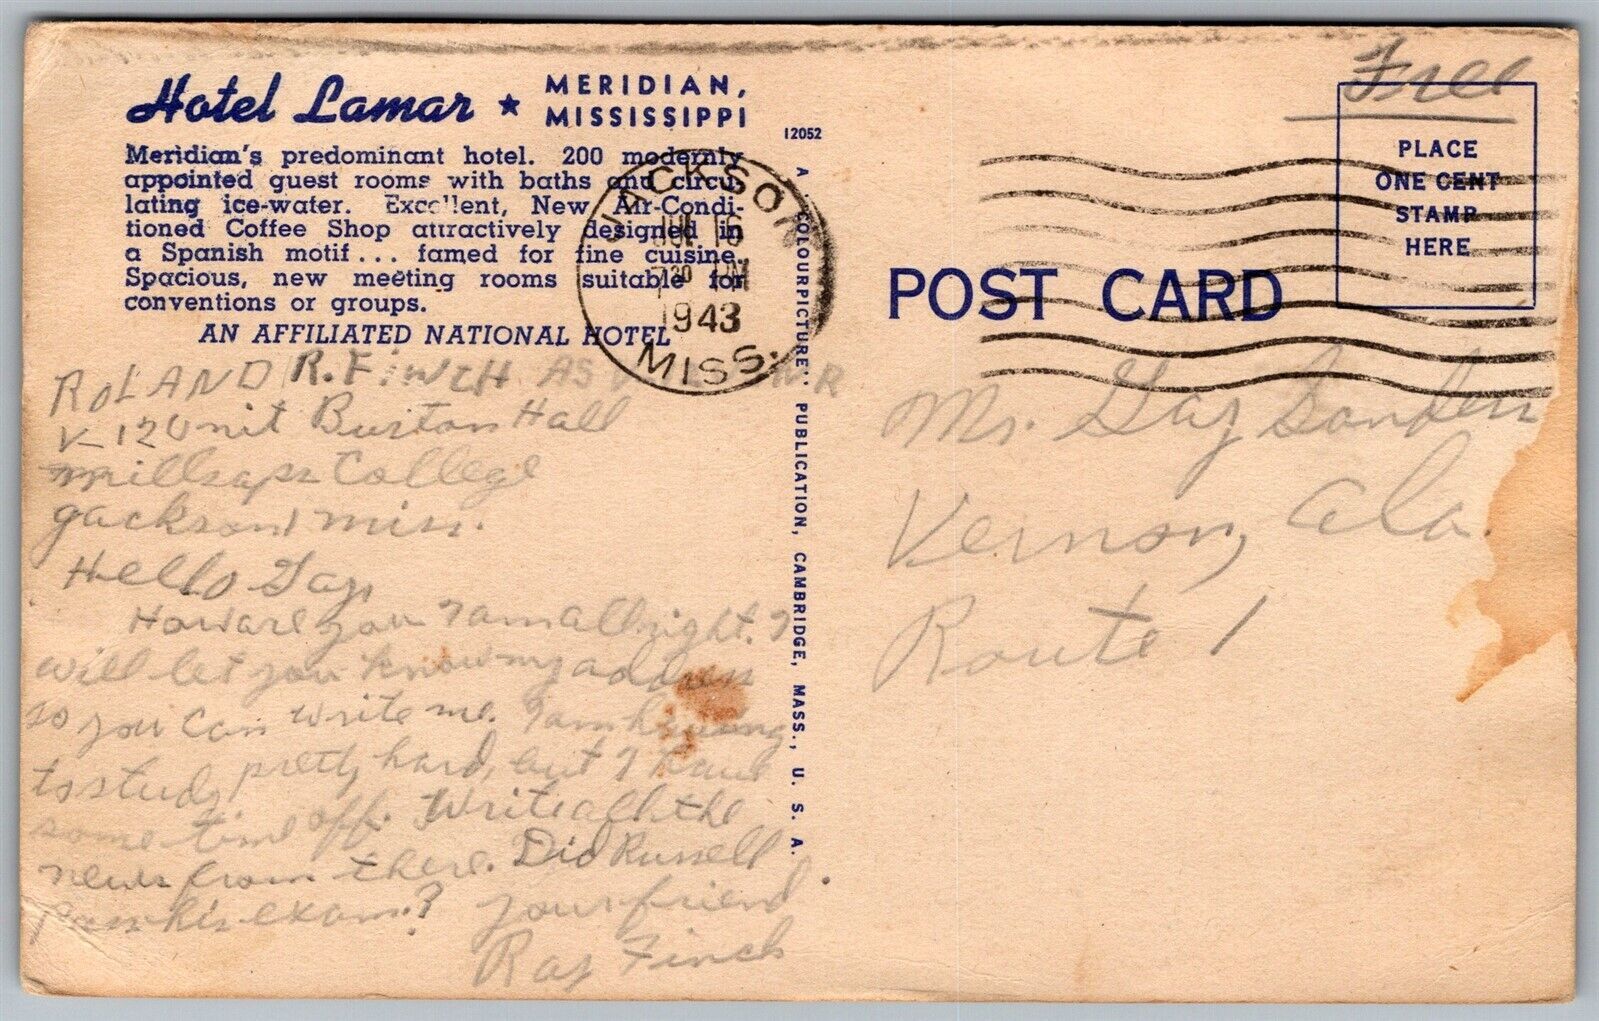 Hotel Lamar ★ MERIDIAN, MISSISSIPPI
Meridian's predominant hotel. 200 modernly
appointed guest rooms with baths and circu-
lating ice-water. Excellent, New Air-Condi-
tioned Coffee Shop attractively designed in
a Spanish motif... famed for fine cuisine.
Spacious, new meeting rooms suitable for
conventions or groups.
AN AFFILIATED NATIONAL HOTEL
ROLAND R. FINCH AS V
V-12 Unit Burton Hall
Millsaps College
Jackson, Miss.
Hello Gay,
How are you I am all right. I
will let you know my address
so you can write me. I am having
to study pretty hard, but I have
some time off. Write all the
news from there. Did Russell
pass his exam? your friend
Ray Finch
12052
A "COLOURPICTURE" PUBLICATION, CAMBRIDGE, MASS., U. S. A.
JACKSON
JUL 16
7 30 PM
1943
MISS.
Free
PLACE
ONE CENT
STAMP
HERE
POST CARD
Mr. Gay
Vernon, Ala.
Route 1